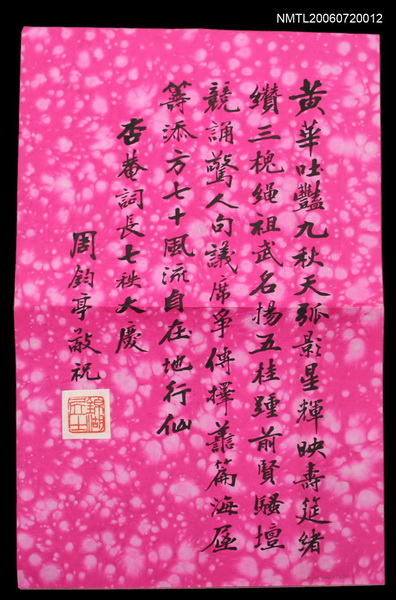 NMTL20060720012
黃華吐豔九秋天弧影星輝映壽筵緒
纘三槐繩祖武名揚五桂踵前賢騷壇
競誦驚人句議席爭傳擇善篇海屋
籌添方七十風流自在地行仙
杏菴詞長七秩大慶
周鈞亭敬祝